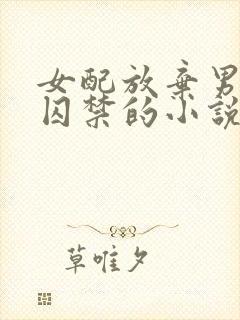 女配放棄男
囚禁的小說
草唯夕